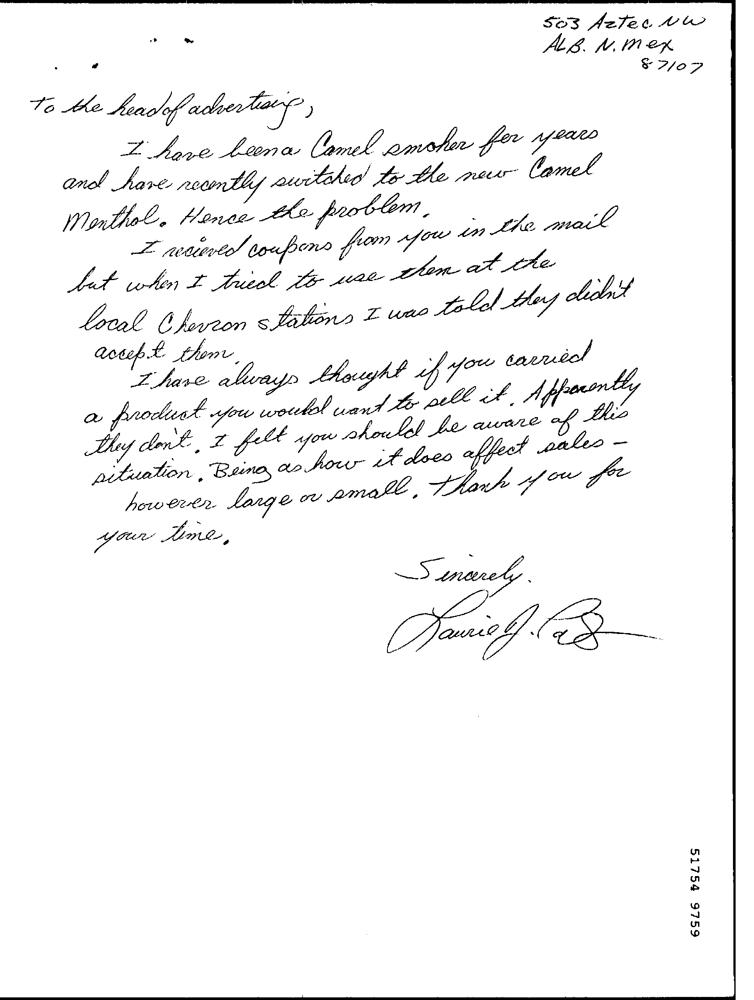 503 Aztec NW
ALB. N. Mex
87107
To the head of advertising,
I have been a Camel smoker for years
and have recently switched to the new Camel
Menthol. Hence the problem.
I recieved coupons from you in the mail
but when I tried to use them at the
local Chevron stations I was told they didn't
accept them.
I have always thought if you carried
a product you would want to sell it. Apparently
they don't. I felt you should be aware of this
situation. Being as how it does affect sales -
however large or small. Thank you for
your time.
Sincerely.
Laurie J.
51754 9759